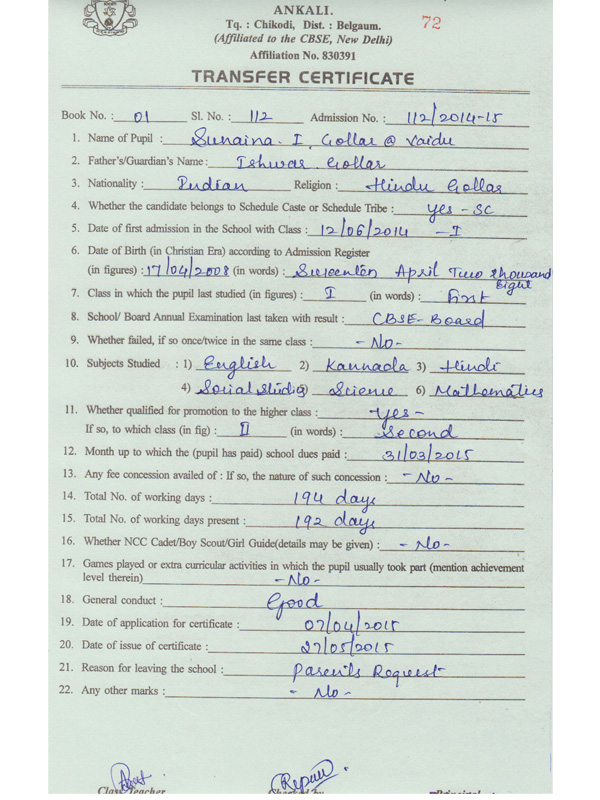 ANKALI.
Tq. : Chikodi, Dist. : Belgaum.
72
(Affiliated to the CBSE, New Delhi)
Affiliation No. 830391
TRANSFER CERTIFICATE
Book No. : 01 Sl. No. : 112 Admission No. : 112/2014-15
1. Name of Pupil : Sunaina. I. Gollar @ Vaidu
2. Father's/Guardian's Name : Ishwar Gollar
3. Nationality : Indian Religion : Hindu Gollar
4. Whether the candidate belongs to Schedule Caste or Schedule Tribe : Yes - SC
5. Date of first admission in the School with Class : 12/06/2014 - I
6. Date of Birth (in Christian Era) according to Admission Register
(in figures) : 17/04/2008 (in words) : April Two thousand
Eight
7. Class in which the pupil last studied (in figures) : I (in words) : first
8. School/ Board Annual Examination last taken with result : CBSE - Board
9. Whether failed, if so once/twice in the same class : - No -
10. Subjects Studied : 1) English 2) Kannada 3) Hindi
4) Social Studies 5) Science 6) Mathematics
11. Whether qualified for promotion to the higher class : - Yes -
If so, to which class (in fig) : II (in words) : Second
12. Month up to which the (pupil has paid) school dues paid : 31/03/2015
13. Any fee concession availed of : If so, the nature of such concession : - No -
14. Total No. of working days : 194 days
15. Total No. of working days present : 192 days
16. Whether NCC Cadet/Boy Scout/Girl Guide(details may be given) : - No -
17. Games played or extra curricular activities in which the pupil usually took part (mention achievement
level therein) - No -
18. General conduct : Good
19. Date of application for certificate : 07/04/2015
20. Date of issue of certificate : 27/05/2015
21. Reason for leaving the school : Parent's Request
22. Any other marks : - No -
Class Teacher Checked by Principal